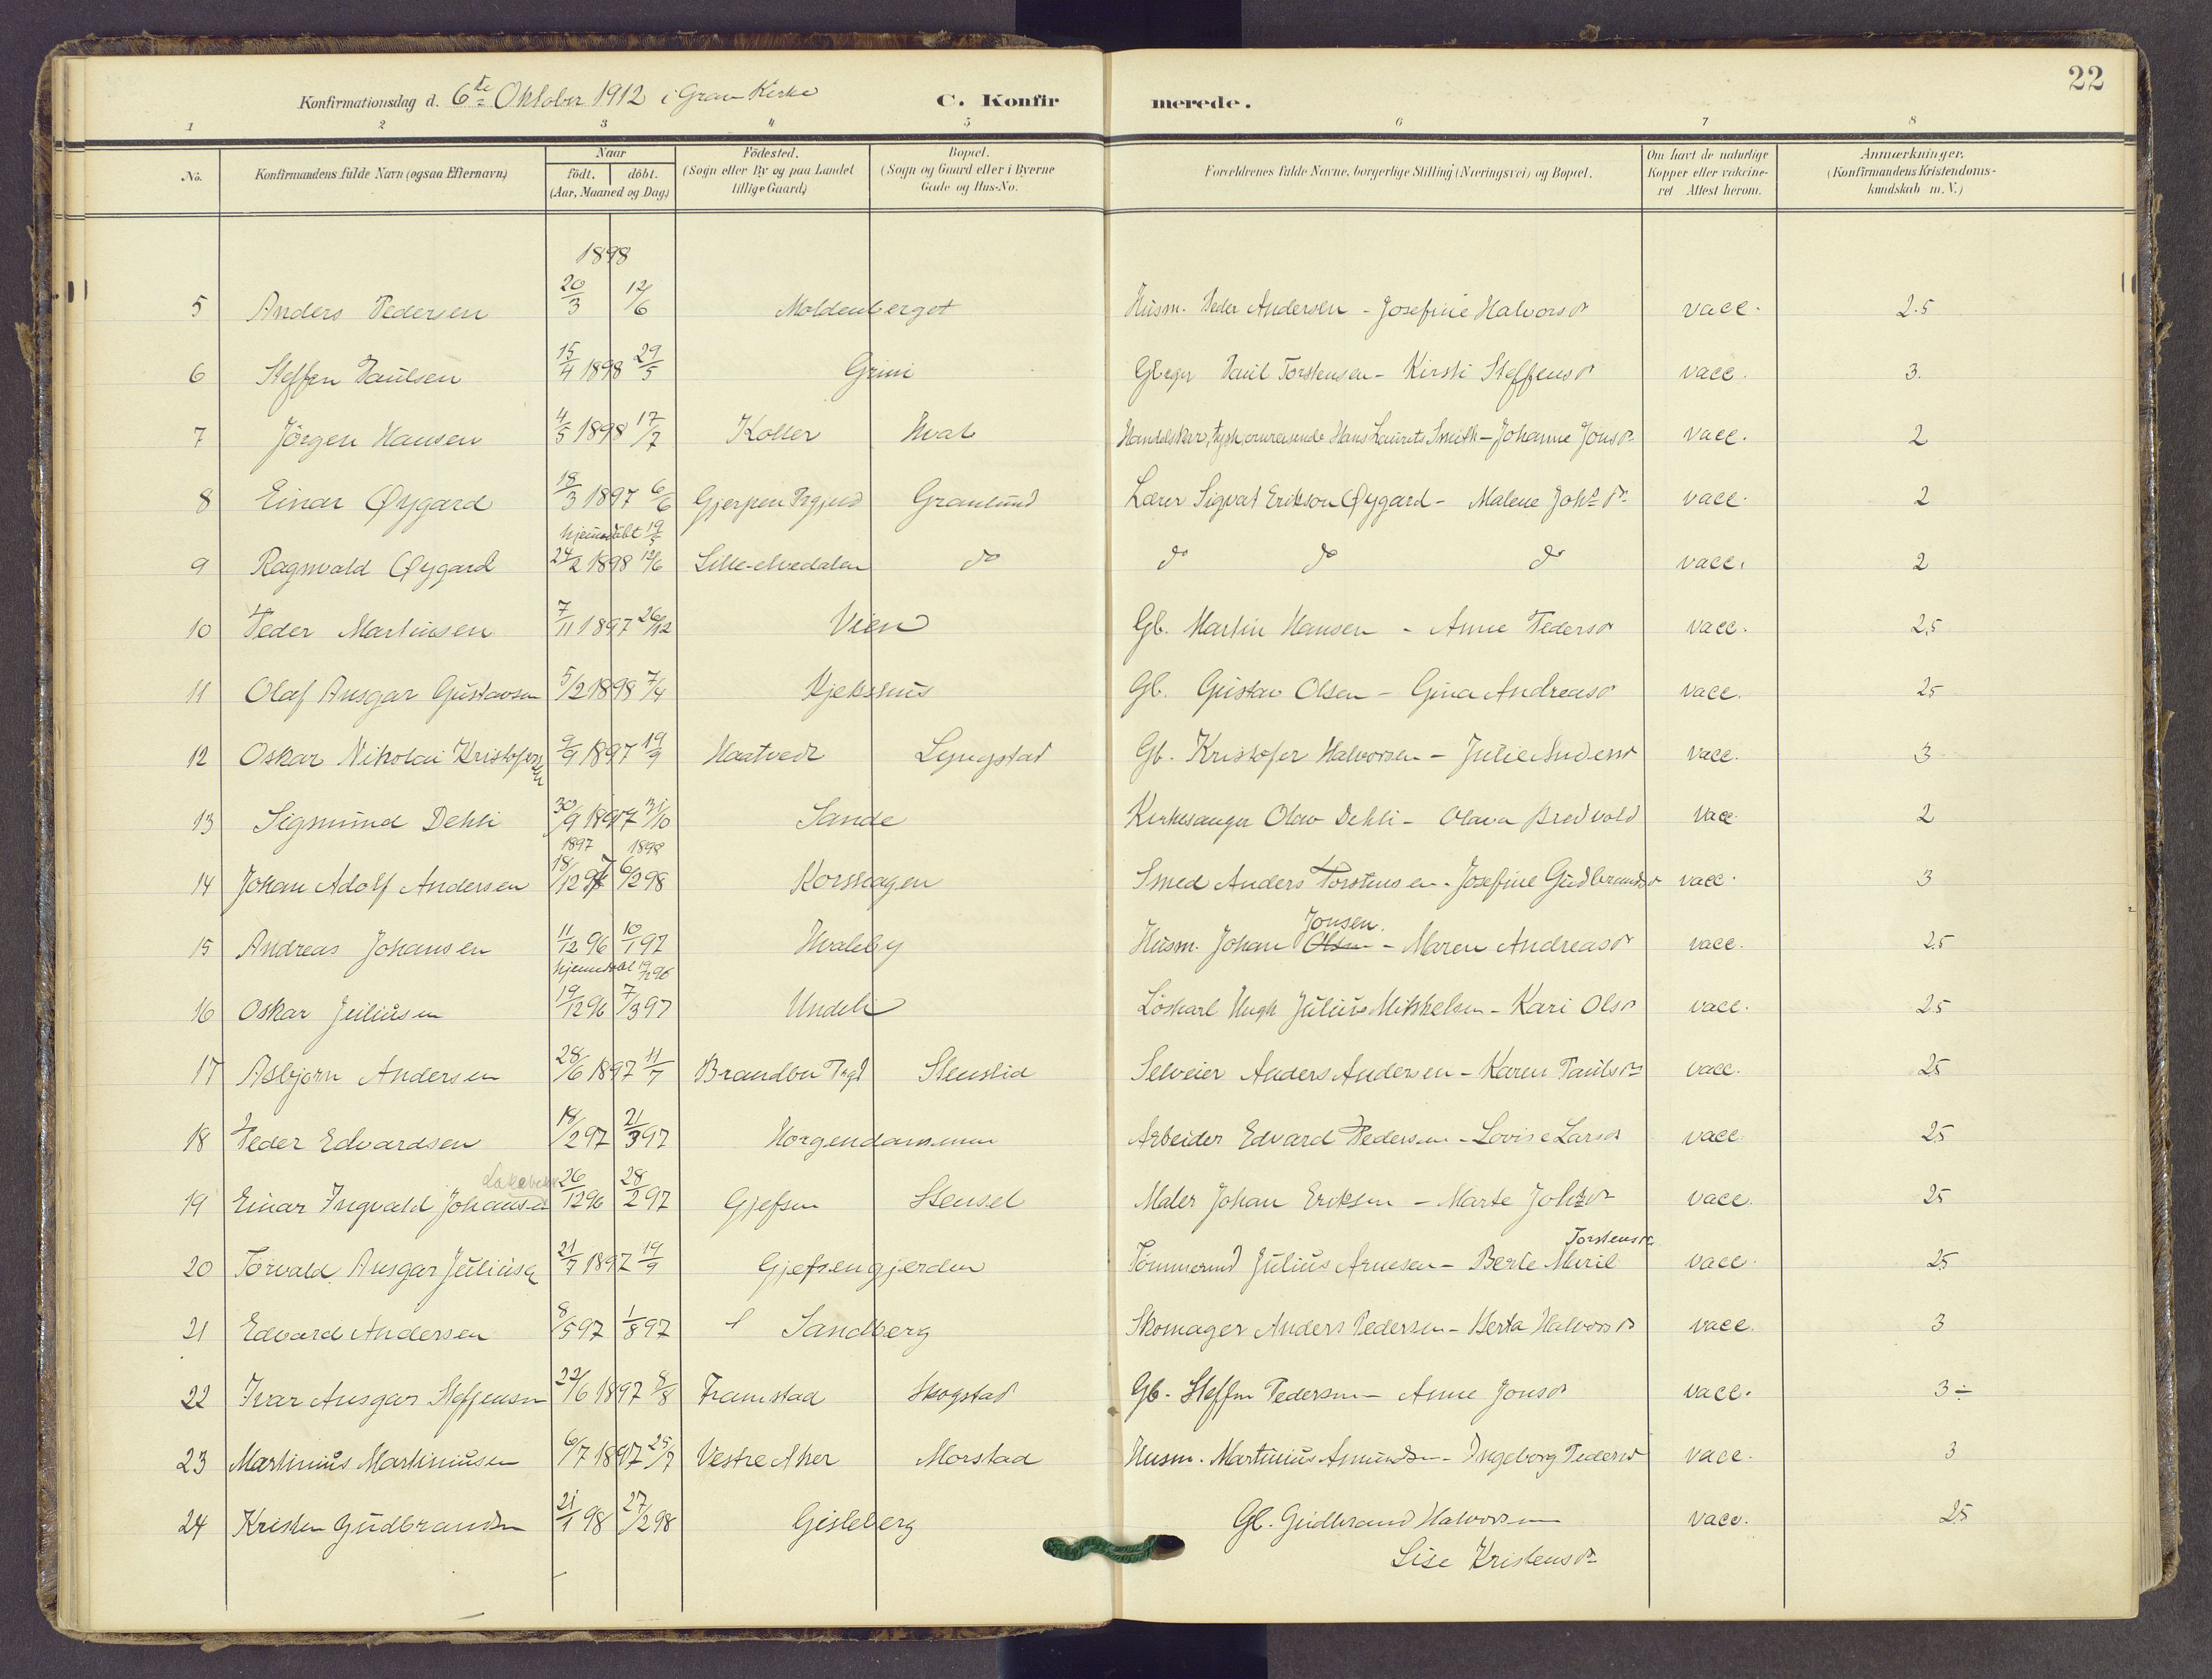 22
Konfirmationsdag d. 6te Oktober 1912 i Gran Kirke C. Konfir merede.
1 2 3 4 5 6 7 8
No. Konfirmandens fulde Navn (ogsaa Efternavn) Naar födt. döbt. (Aar, Maaned og Dag) Födested. (Sogn eller By og paa Landet tillige Gaard) Bopæl. (Sogn og Gaard eller i Byerne Gade og Hus-No. Forældrenes fulde Navne, borgerlige Stilling (Næringsvei) og Bopæl. Om havt de naturlige Kopper eller vakcineret Attest herom. Anmærkninger. (Konfirmandens Kristendomskundskab m. V.)
1898
5 Anders Pedersen 20/3 12/6 Moldenberget Husm. Peder Andersen - Josefine Halvorsdr vacc. 2.5
6 Steffen Paulsen 15/4 1898 29/5 Grini Gbruger Paul Torstensen - Kirsti Steffensdr vacc. 3.
7 Jörgen Hansen 4/5 1898 17/7 Koller Hval Hans Laurits Smith - Johanne Jonsdr vacc. 2
8 Einar Øygard 18/3 1897 6/6 Gjerpen Prgjeld Granlund Lærer Sigvat Erikson Øygard - Malene Johsdr vacc. 2
hjemmedöbt 19/3
9 Ragnvald Øygard 24/2 1898 12/6 Lille-elvedalen do do do do vacc. 2
10 Peder Martinsen 7/11 1897 26/12 Vien Gb. Martin Hansen - Anne Pedersdr vacc. 2,5
11 Olaf Ansgar Gustavsen 5/2 1898 7/4 Kjekshus Gb. Gustav Olsen - Gina Andreasdr vacc. 25
12 Oskar Nikolai Kristofersen 9/9 1897 19/9 Haatvedt Lyngstad Gb. Kristofer Halvorsen - Julie Andersdr vacc. 3
13 Sigmund Dehli 30/9 1897 31/10 Sande Kirkesanger Olav Dehli - Olava Bredvold vacc. 2
1897 1898
14 Johan Adolf Andersen 18/12 97 6/2 98 Korshagen Smed Anders Torstensen - Josefine Gudbrandsdr vacc. 3
Jonsen.
15 Andreas Johansen 11/12 96 10/1 97 Hvaleby Husm. Johan Olsen - Maren Andreasdr vacc. 2.5
hjemmedöbt 19/12 96
16 Oskar Juliussen 19/12 96 7/3 97 Undeli Löskarl Ungk Julius Mikkelsen - Kari Olsdr vacc. 2.5
17 Asbjørn Andersen 28/6 1897 11/7 Brandbu Prgd Stenslid Selveier Anders Andersen - Karen Paulsdr vacc. 25
18 Peder Edvardsen 18/2 97 21/3 97 Horgendammen Arbeider Edvard Pedersen - Lovise Larsdr vacc. 25
19 Einar Ingvald Johansen 26/12 96 28/2 97 Gjefsen Stensel Maler Johan Eriksen - Marte Johsdr vacc. 25
Torstensdr
20 Torvald Ansgar Juliusen 21/7 1897 19/9 Gjefsengjerden Tömmermd Julius Arnesen - Berte Maril vacc. 25
21 Edvard Andersen 8/5 97 1/8 97 Sandberg Skomager Anders Pedersen - Berta Halvorsdr vacc. 3
22 Ivar Ansgar Steffensen 22/6 1897 8/8 Framstad Skogstad Gb. Steffen Pedersen - Anne Jonsdr vacc. 3÷
23 Martinius Martiniusen 6/7 1897 25/7 Vestre Aker Morstad Husm. Martinius Amundsen - Ingeborg Pedersdr vacc. 3
24 Kristen Gudbrandsen 21/1 98 27/2 98 Gisleberg Gb. Gudbrand Halvorsen vacc. 25
Lise Kristensdr